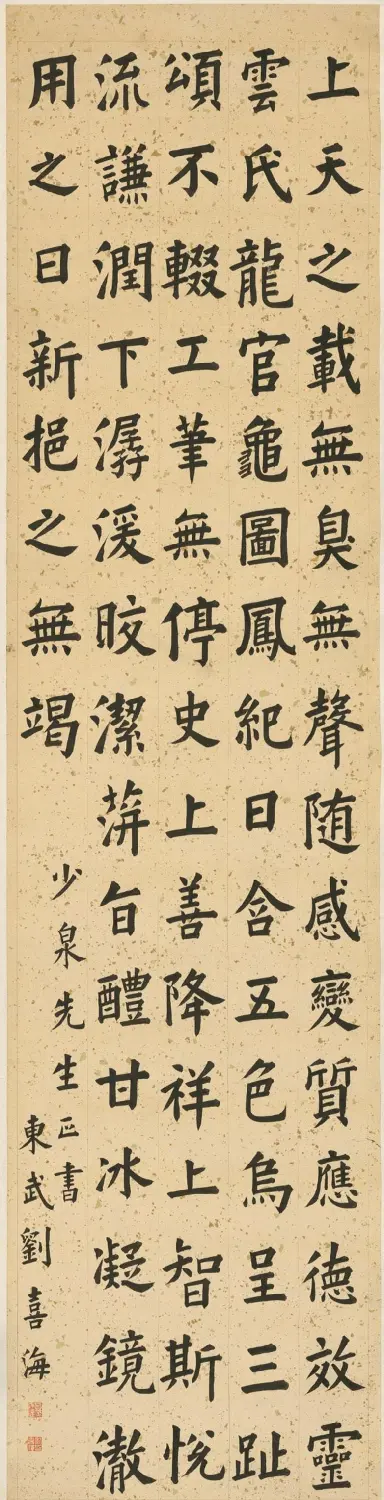 上天之載無臭無聲随感變質應德效靈
雲氏龍官龜圖鳳紀日含五色烏呈三趾
頌不輟工筆無停史上善降祥上智斯悅
流謙潤下潺湲皎潔蓱旨醴甘冰凝鏡澈
用之日新挹之無竭
少泉先生正書
東武劉喜海